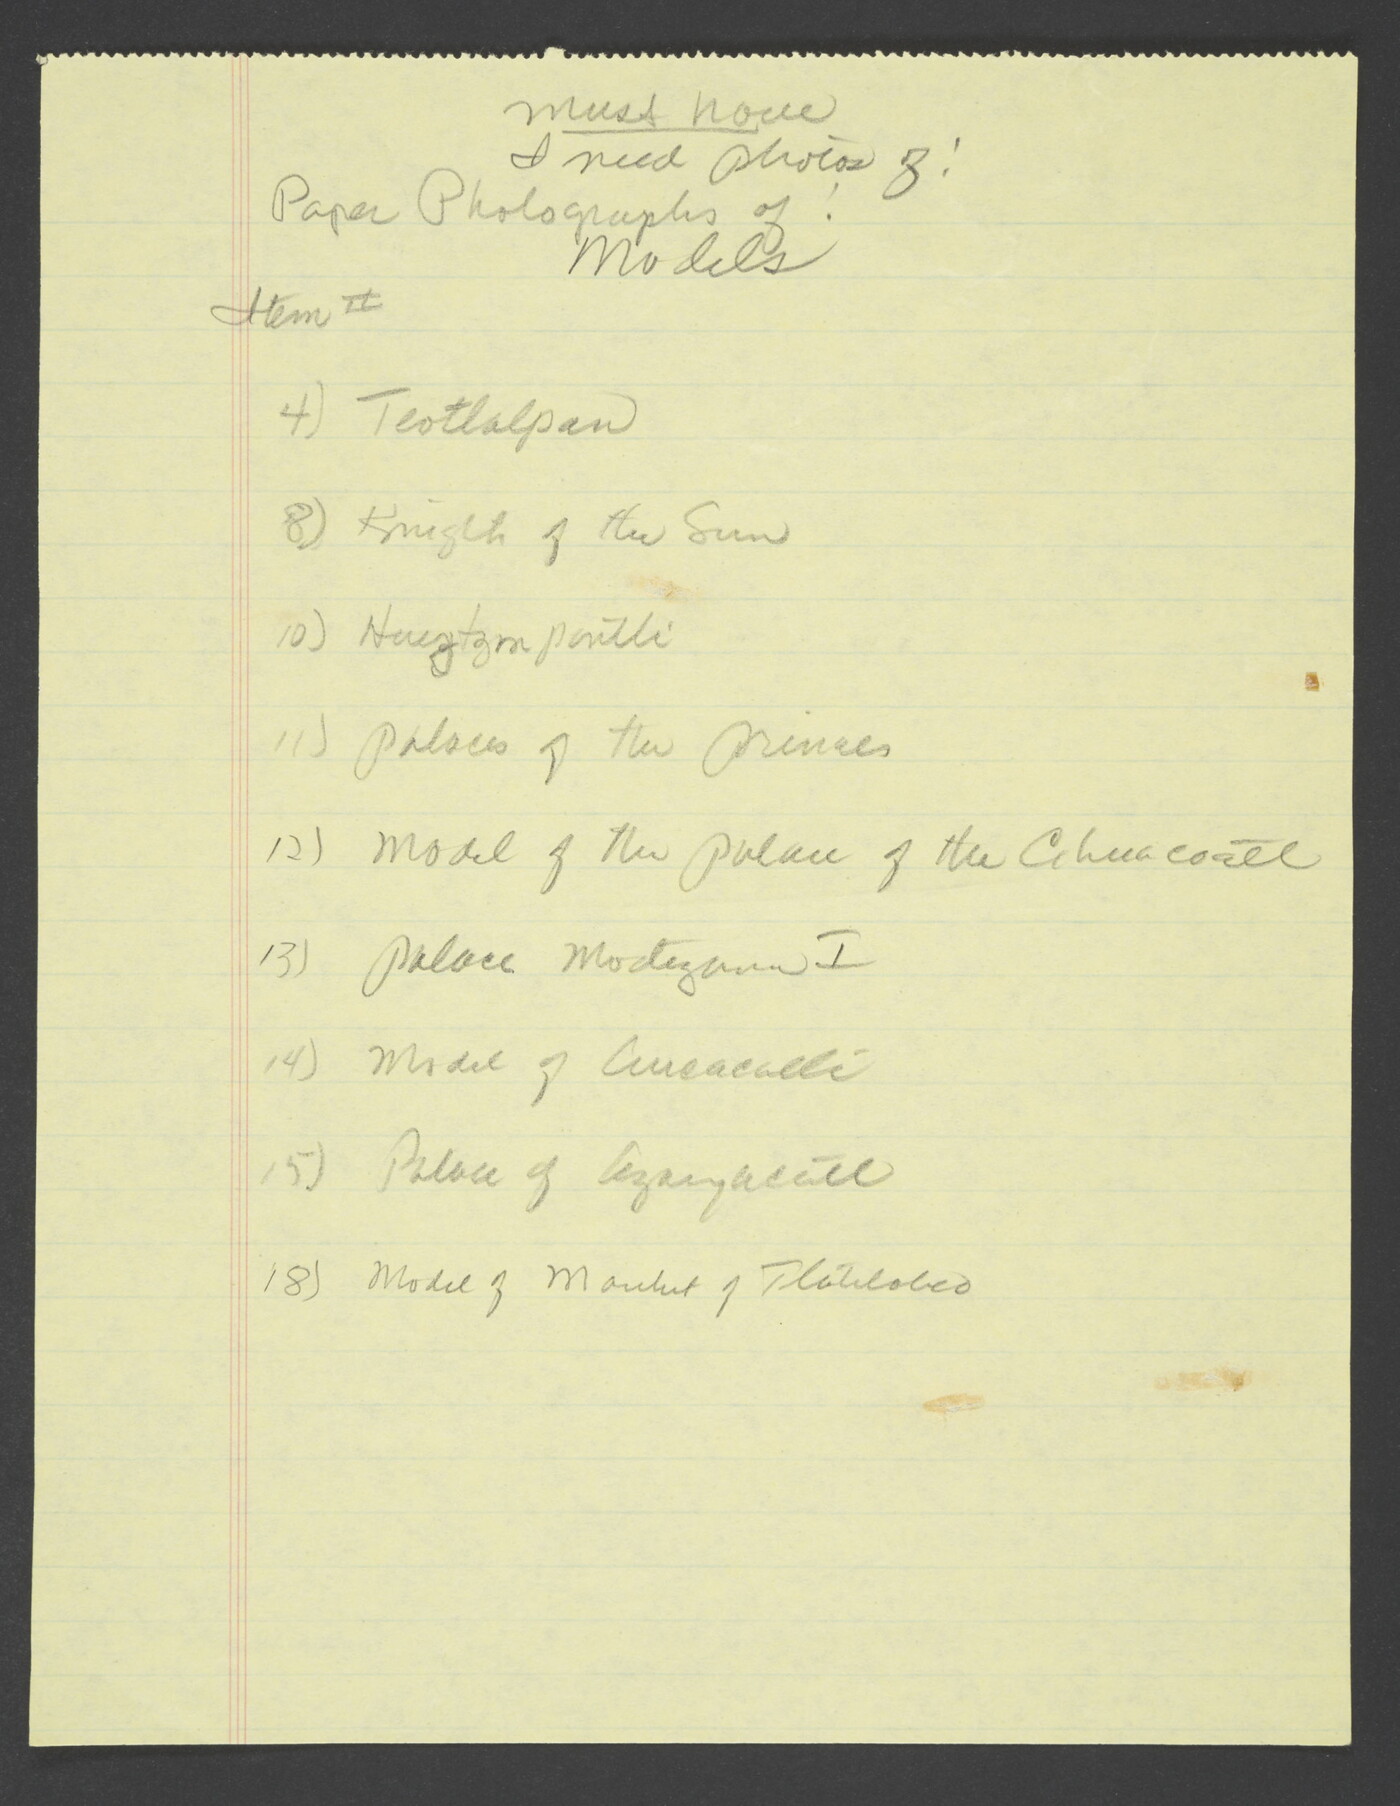 Must have
I need photos of:
Paper Photographs of:
Models
Item #
4) Teotlalpan
8) Knight of the Sun
10) Hueytzompantli
11) Palaces of the princes
12) Model of the palace of the Cihuacoatl
13) Palace Moctezuma I
14) Model of Cuicacalli
15) Palace of Axayacatl
18) Model of Market of Tlatelolco